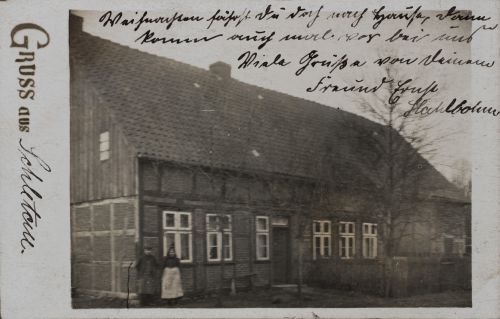 Weihnachten fährst du doch nach Hause, dann
komm auch mal vor bei uns
Viele Grüße von deinem
Freund Ernst
Gruss aus